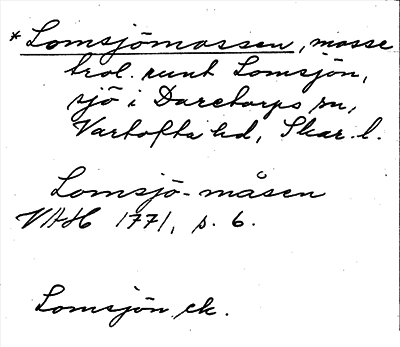 *Lomsjömossen, mosse
trol. runt Lomsjön,
sjö i Daretorps sn,
Vartofta hd, Skar. l.
Lomsjö-måsen
VAH 1771, s. 6.
Lomsjön ek.